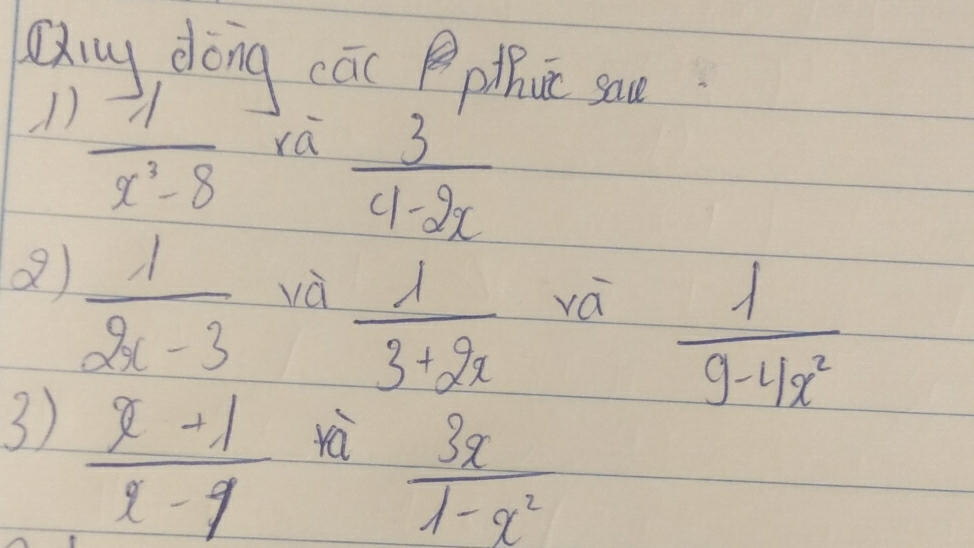 Quy đồng các pthức sau :
1) 1/(x³ - 8) và 3/(4 - 2x)
2) 1/(2x - 3) và 1/(3 + 2x) và 1/(9 - 4x²)
3) (x + 1)/(x - 1) và 3x/(1 - x²)